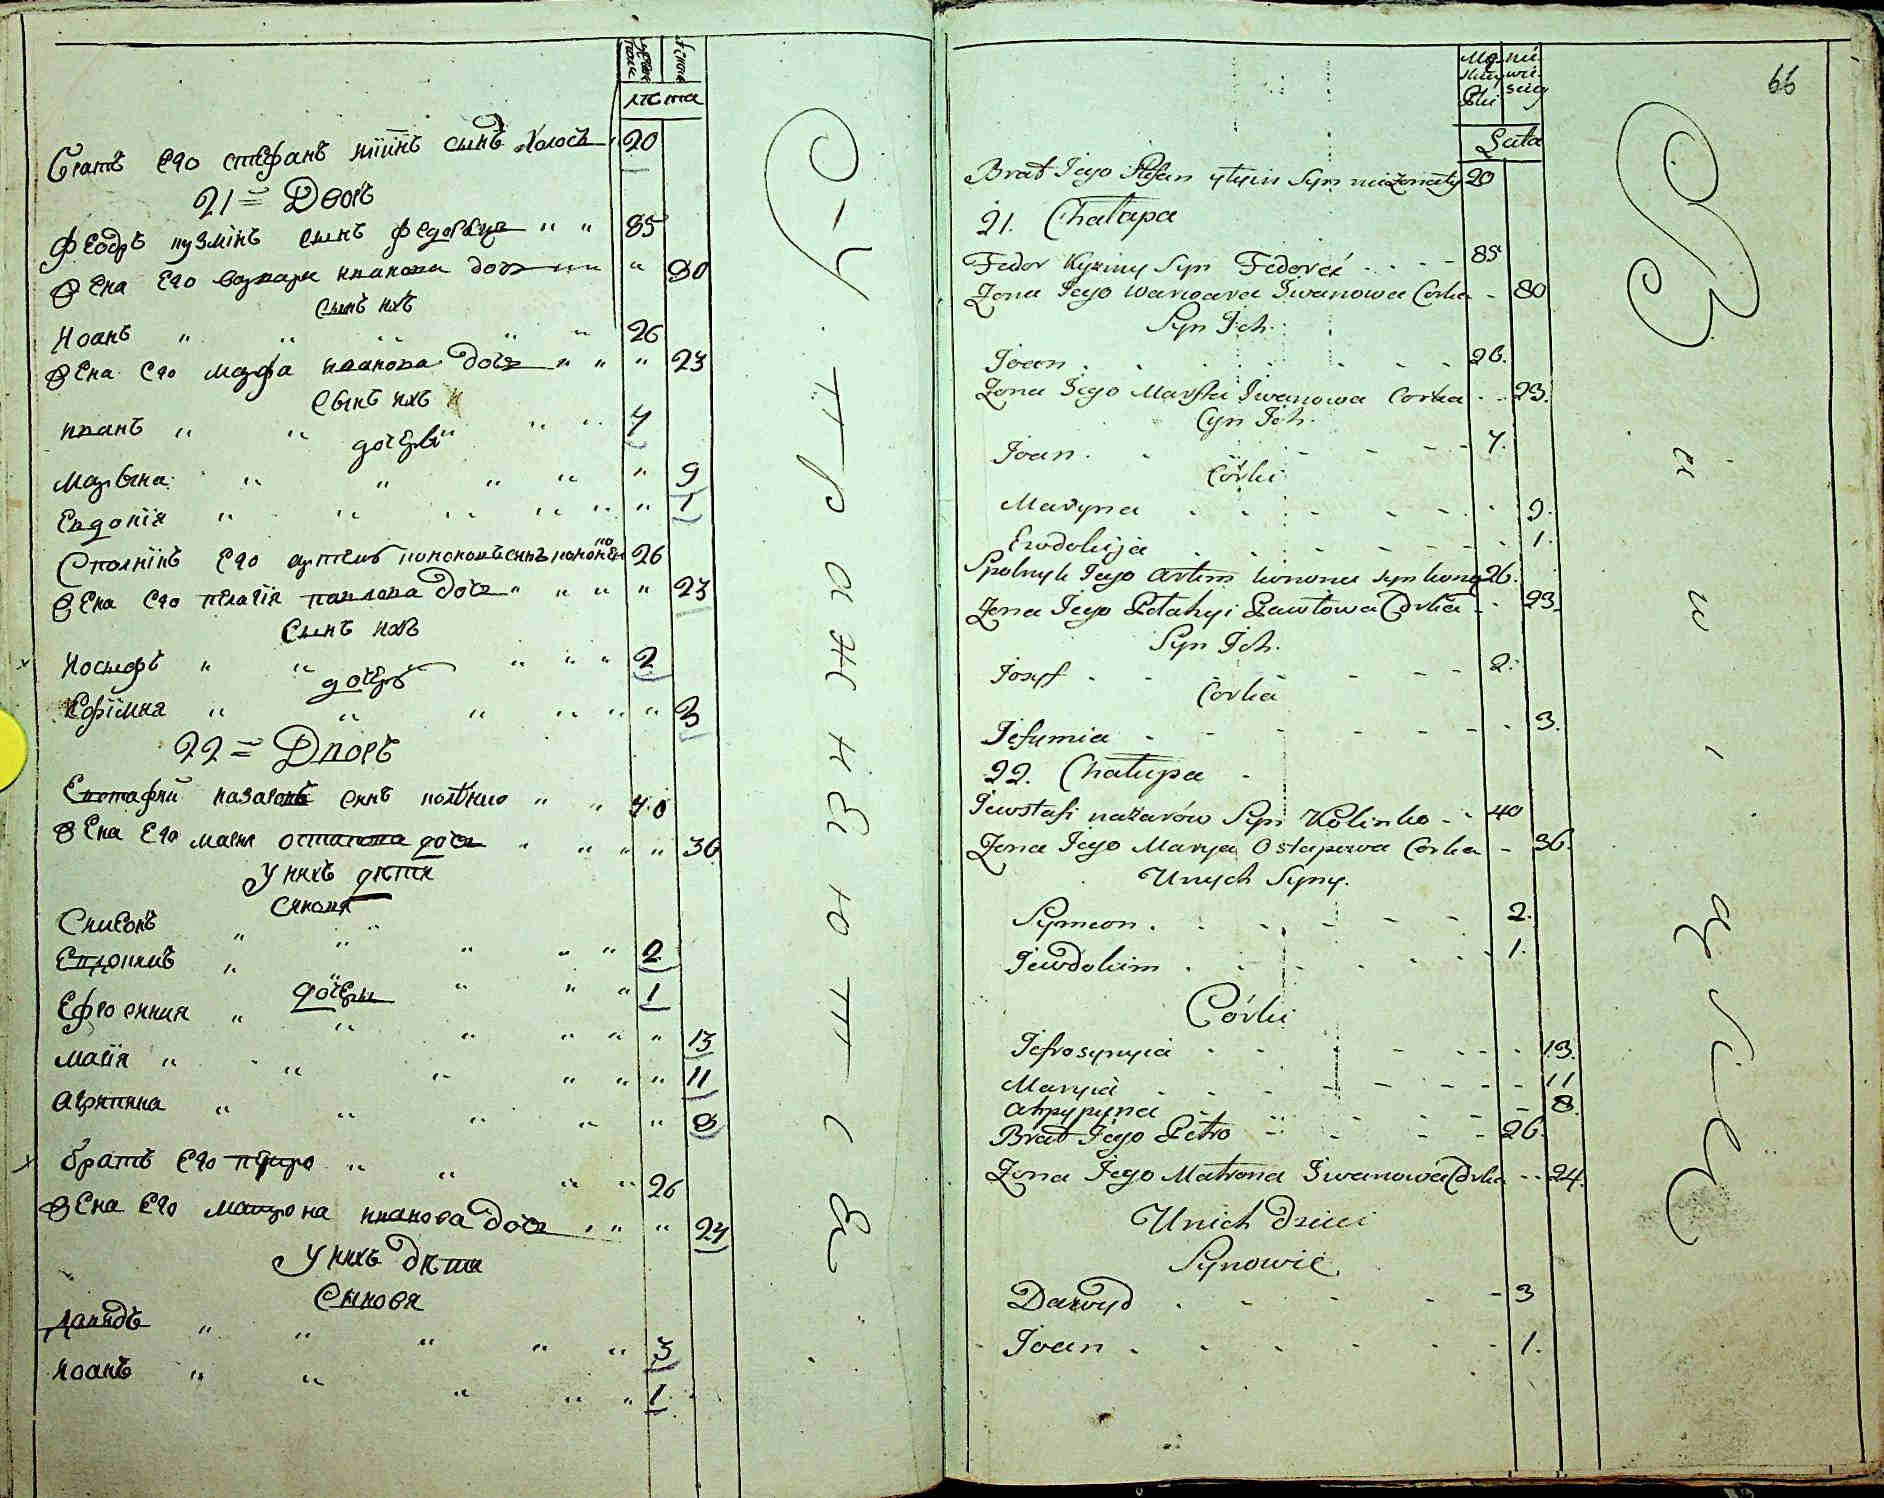 лѣта
Братъ его стефанъ сынъ холостъ 20
21 = Дворъ
Феодоръ кузминъ сынъ федоркце " " 85
Жена его варвара иванова дочь " " " 80
Сынъ ихъ
Иоанъ " " " " 26
Жена его марфа иванова дочь " " " 23
Сынъ ихъ
иванъ " " " " 4
дочери
Марына " " " " " 9
Евдокія " " " " " " 1
Сполникъ его артемъ кононовъ сынъ 26
Жена его пелагія павлова дочь " " " " 23
Сынъ ихъ
Иосифъ " " " " " 2
дочеръ
Ефімия " " " " " " 3
22 = Дворъ
Евстафий назаровъ синъ колѣнко " " 40
Жена его мария остапова дочь " " " " 36
У нихъ дѣти
Синовя
Симеонъ " " " " " 2
Евдокимъ " " " " 1
дочери
Ефросиния " " " " " " 13
Марія " " " " " " 11
Агрипина " " " " " 8
братъ его петро " " " " 26
Жена его матрона иванова дочь " " " 24
У нихъ дѣти
Сынове
давидъ " " " " " 3
иоанъ " " " " " 1
У
п
р
а
ж
н
е
ю
т
с
е
66
Lata
Brat Jego Stefan Syn nieżonaty 20
21. Chałupa
Fedor Kyzmy Syn Fedorcá 85
Żona Jego Warwara Iwanowa Corka - 80
Syn Ich.
Joan 26.
Żona Jego Marfta Iwanowa Corka 23.
Cyn Ich.
Joan 4.
Córki
Maryna 9.
Ewdokija 1.
Spolnyk Jego Artem konona syn 26.
Żona Jego Pelahyi Pawłowa Córka 23.
Syn Ich.
Josyf 2.
Corka
Jefymia 3.
22. Chałupa
Jewstafi nazarów Syn Kolinko 40
Żona Jego Marya Ostapowa Corka - 36.
Unych Syny.
Symeon. 2.
Jewdokim 1.
Córki
Jefrosynyia 13.
Maryia 11
ahrypyna 8.
Brat Jego Petro 26.
Żona Jego Matrona Iwanowa Córka 24.
Unich dzieci
Synowie
Dawyd 3
Joan 1.